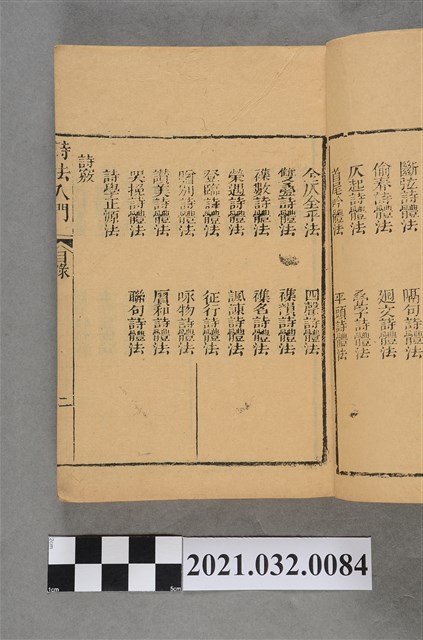 斷弦詩體法　隔句詩體法
偷春詩體法　廻文詩體法
仄起詩體法　疊字詩體法
首尾吟體法　平頭詩體法
全仄全平法　四聲詩體法
雙疊詩體法　襍韻詩體法
襍數詩體法　襍名詩體法
榮遇詩體法　諷諫詩體法
登臨詩體法　征行詩體法
贈別詩體法　咏物詩體法
讚美詩體法　賡和詩體法
哭挽詩體法　聯句詩體法
詩學正源法
詩竅
詩法入門　目錄　二
2cm
1cm
5cm
2021.032.0084